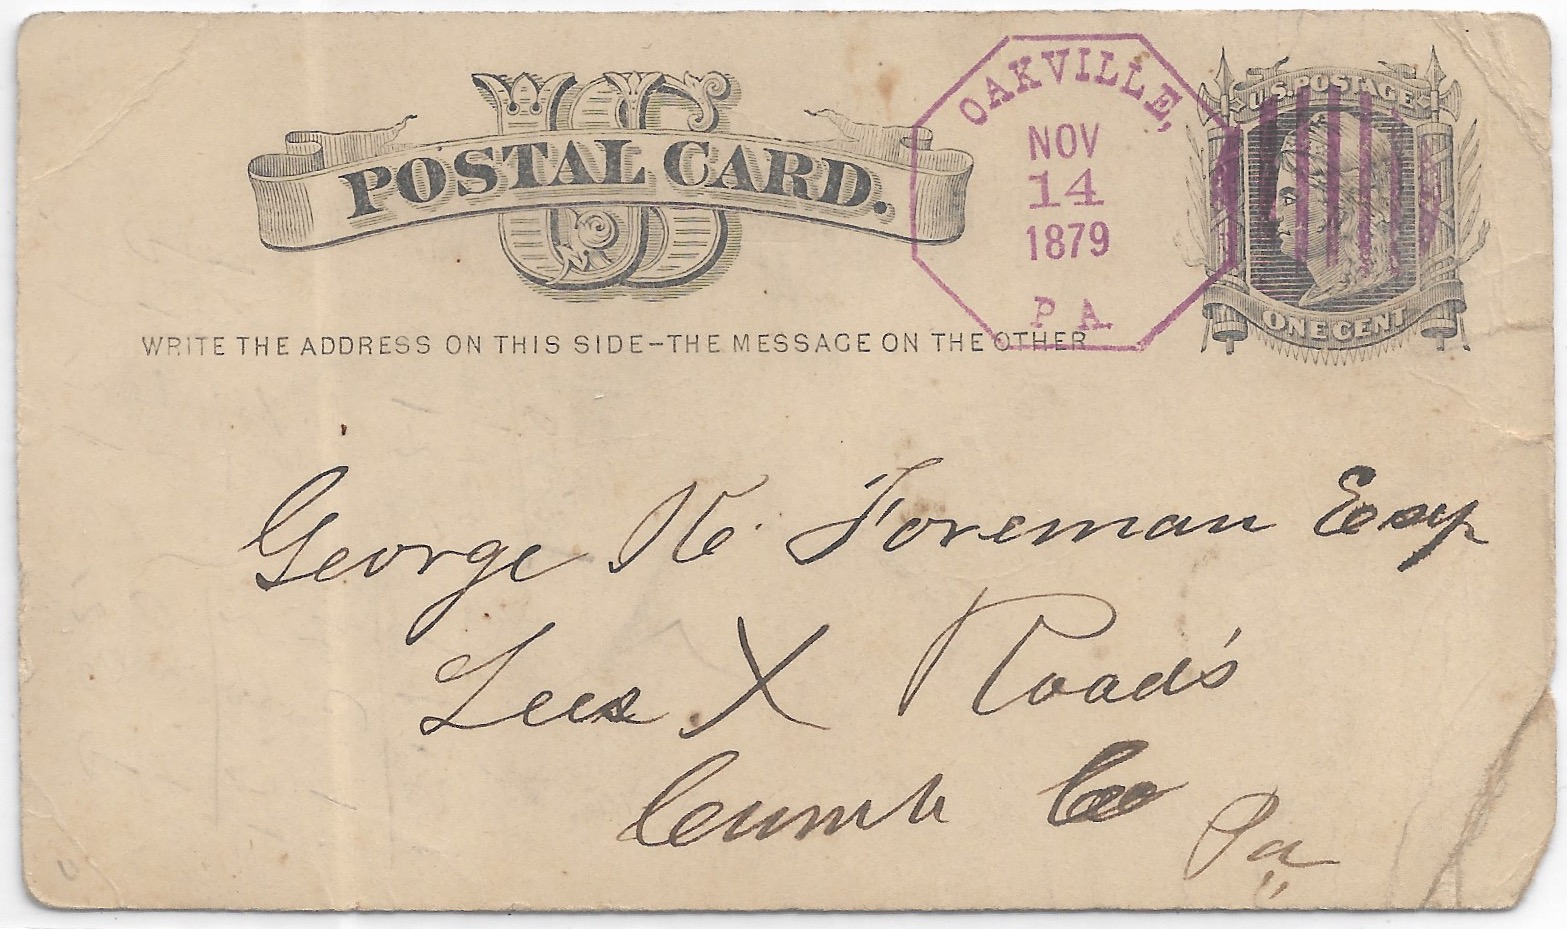 US
POSTAL CARD.
WRITE THE ADDRESS ON THIS SIDE-THE MESSAGE ON THE OTHER
OAKVILLE,
NOV
14
1879
PA.
U.S. POSTAGE
ONE CENT
George K. Foreman Esq
Lees X Road's
Cumb Co
Pa